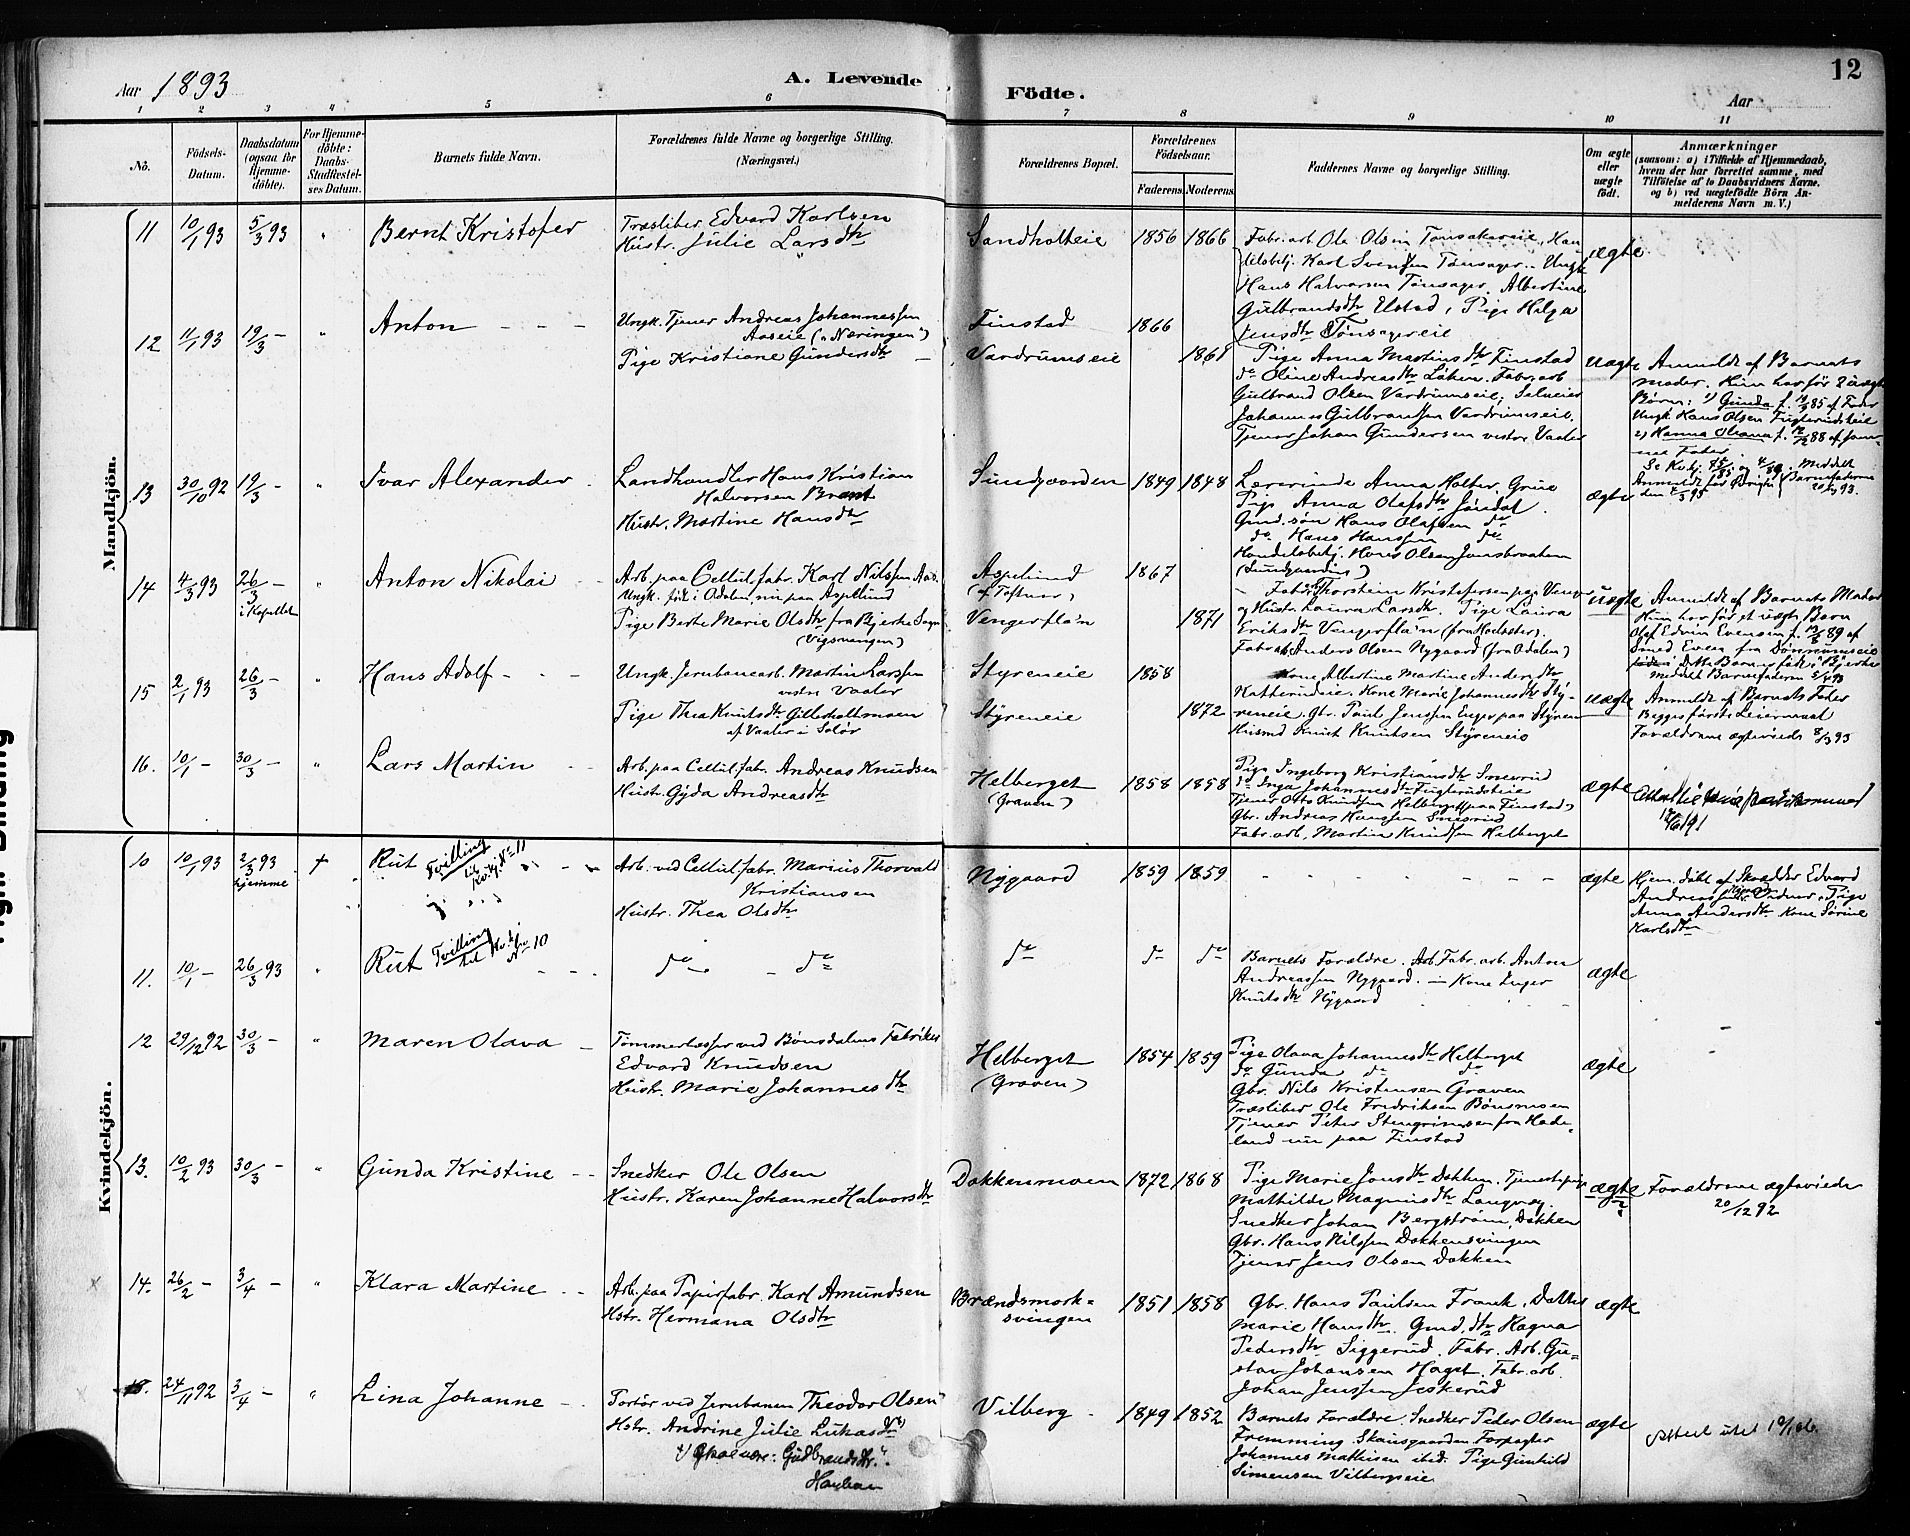 Aar 1893
A. Levende
Födte.
12
Aar
1 2 3 4 5 6 7 8 9 10 11
No.
Födsels-Datum.
Daabsdatum (ogsaa for Hjemmedöbte).
For Hjemmedöbte: Daabs-Stadfæstelses Datum.
Barnets fulde Navn.
Forældrenes fulde Navne og borgerlige Stilling. (Næringsvei.)
Forældrenes Bopæl.
Forældrenes Födselsaar.
Faderens. Moderens.
Faddernes Navne og borgerlige Stilling.
Om ægte eller uægte födt.
Anmærkninger
(saasom: a) i Tilfælde af Hjemmedaab, hvem der har forrettet samme, med Tilföielse af to Daabsvidners Navne. og b) ved uægtefödte Börn Anmelderens Navn m. V.)
Mandkjön.
11 10/1 93 5/3 93 " Bernt Kristofer
Træsliber Edvard Karlsen
Hustr. Julie Larsdtr
Sandholteie 1856 1866
Fabr. arb. Ole Olsen Tønsakereie, Han-
delsbetj. Karl Svendsen Tønsager, Ungk.
Hans Halvorsen Tønsager. Albertine
Gulbrandsdtr Elstad, Pige Helga
Jensdtr Tønsagereie
ægte
12 11/1 93 19/3 - " Anton
Ungk. Tjener Andreas Johannessen
Aaseie ("Næringen")
Pige Kristiane Gundersdtr
Finstad 1866
Vardrumseie 1861
Pige Anna Martinsdtr Finstad
do Oline Andreasdtr Løken. Fabr. arb
Gulbrand Olsen Vardrumseie; Selveier
Johannes Gulbransen Vardrumseie.
Tjener Johan Gundersen vestre Vaaler
uægte
Anmeldt af Barnets
moder. Hun har før 2 uægte
Børn: 1) Gunda f. 85 af Fader
Ungk. Hans Olsen Fuglerudseie
2) Hanna Oleana f. 88 af sam-
me Fader.
13 30/10 92 19/3 - " Ivar Alexander
Landhandler Hans Kristian
Halvorsen Brant
Hustr. Martine Hansdtr
Sundgaarden 1849 1848
Lærerinde Anna Holter, Grue
Pige Anna Olafsdtr Jøndal
Gmd. søn Hans Olafsen do
do Hans Hanssen do
Handelsbetj. Hans Olsen Jonsbraaten
(Sundgaarden)
ægte
14 4/3 93 26/3 - i Kapellet " Anton Nikolai
Arb. paa Cellul. fabr. Karl Nilssen Aas.
Ungk. født i Odalen, nu paa Aspelund
Pige Berte Marie Olsdtr fra Bjerke Sogn
(Vigsvangen)
Aspelund 1867
(af Toftner)
Vengerflån 1871
Fabr. arb. Thorstein Kristofersen paa Venger
og Hustr. Laura Larsdtr. Pige Laura
Eriksdtr Vengerflån (fra Hadeler).
Fabr. arb. Anders Olsen Nygaard (fra Odalen)
uægte
Anmeldt af Barnets Moder
Hun har før et uægte Barn
Olaf Edvin Evensen f. 89 af
Smed Even fra Dønnumseie
Dette Barn er født i Bjerke
15 2/1 93 26/3 - " Hans Adolf
Ungk. Jernbanearb. Martin Larssen
vestre Vaaler
Pige Thea Knutsdtr Gillerholtmoen
af Vaaler i Solør
Styreneie 1858
Styreneie 1872
Kone Albertine Martine Andersdtr
Katterudeie. Kone Marie Johannesdtr Sty-
reneie, Gbr. Paul Jenssen Enger paa Styren
Husmd Knut Knutsen Styreneie
uægte
Anmeldt af Barnets Fader
Begges første Leiermaal
Forældrene ægteviede 8/3 93
16. 10/1 - 30/3 - " Lars Martin
Arb. paa Cellul. fabr. Andreas Knudsen
Hustr. Gyda Andreasdtr
Helberget 1858 1858
(Graven)
Pige Ingeborg Kristiansdtr Snerud
do Inga Johannesdtr Fuglerudseie
Tjener Otto Knudsen Helberget (paa Finstad)
Gbr. Andreas Hanssen Snerud
Fabr. arb. Martin Knudsen Helberget
ægte
Kvindekjön.
10 10/1 93 2/3 93 hjemme † Rut Tvilling til Kvkj. No 11
Arb. ved Cellul. fabr. Marius Thorvald
Kristiansen
Hustr. Thea Olsdtr
Nygaard 1859 1859
ægte
Hjem. døbt af Skrædder Edvard
Andreassen Pige
Anna Andersdtr Kone Sørine
Karlsdtr
11. 10/1 - 26/3 93 " Rut Tvilling til Kvkj. No 10
do do
do do do
Barnets Forældre. Fabr. arb. Anton
Andreassen Nygaard. Kone Inger
Knutsdtr Nygaard
ægte
12 29/12 92 30/3 - " Maren Olava
Tømmerlæsser ved Bönsdalens Fabriker
Edvard Knudsen
Hustr. Marie Johannesdtr
Helberget 1854 1859
(Graven)
Pige Olava Johannesdtr Helberget
do Gunda do do
Gbr. Nils Kristensen Graven
Træsliber Ole Fredriksen Bönsmoen
Tjener Peter Stengrimsen fra Hade-
land nu paa Finstad
ægte
13. 10/2 93 30/3 - " Gunda Kristine
Snedker Ole Olsen
Hustr. Karen Johanne Halvorsdtr
Dokkenmoen 1872 1868
Pige Marie Jonsdtr Dokken. Tjenestepige
Mathilde Magnusdtr Langvag.
Snedker Johan Bergstrøm, Dokken
Gbr. Hans Nilssen Dokkensvingen
Tjener Jens Olsen Dokken
ægte
Forældrene ægteviede
20/12 92
14. 26/2 - 3/4 - " Klara Martine
Arb. paa Papirfabr. Karl Amundsen
Hstr. Hermana Olsdtr
Brændsmork-
svingen 1851 1858
Gbr. Hans Paulsen Frank, Datter
Marie Hansdtr. Gmd. dtr Ragna
Pedersdtr Siggerud. Fabr. Arb. Gu-
stav Johansen Haget. Fabr. arb.
Johan Jenssen Jeskerud
ægte
15. 24/11 92 3/4 - " Lina Johanne
Portør ved Jernbanen Theodor Olsen
Hstr. Andrine Julie Lukasdtr 1)
1) Skal være: "Gudbrandsdtr".
Vilberg 1849 1852
Barnets Forældre. Snedker Peder Olsen
Fremming Skansgaarden Forpagter
Johannes Mathisen ibid. Pige Gunhild
Simensen Vilbergseie
ægte
Attest utst